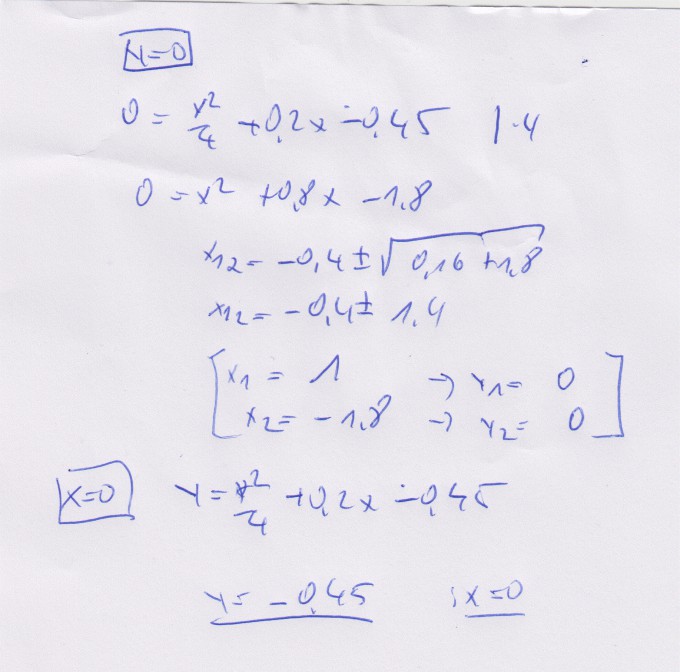 y=0
0 = x²/4 +0,2x -0,45 |·4
0 = x² +0,8x -1,8
x₁₂= -0,4 ± √(0,16 +1,8)
x₁₂= -0,4 ± 1,4
x₁ = 1 → y₁= 0
x₂= -1,8 → y₂= 0
x=0 y= x²/4 +0,2x -0,45
y= -0,45 ; x=0